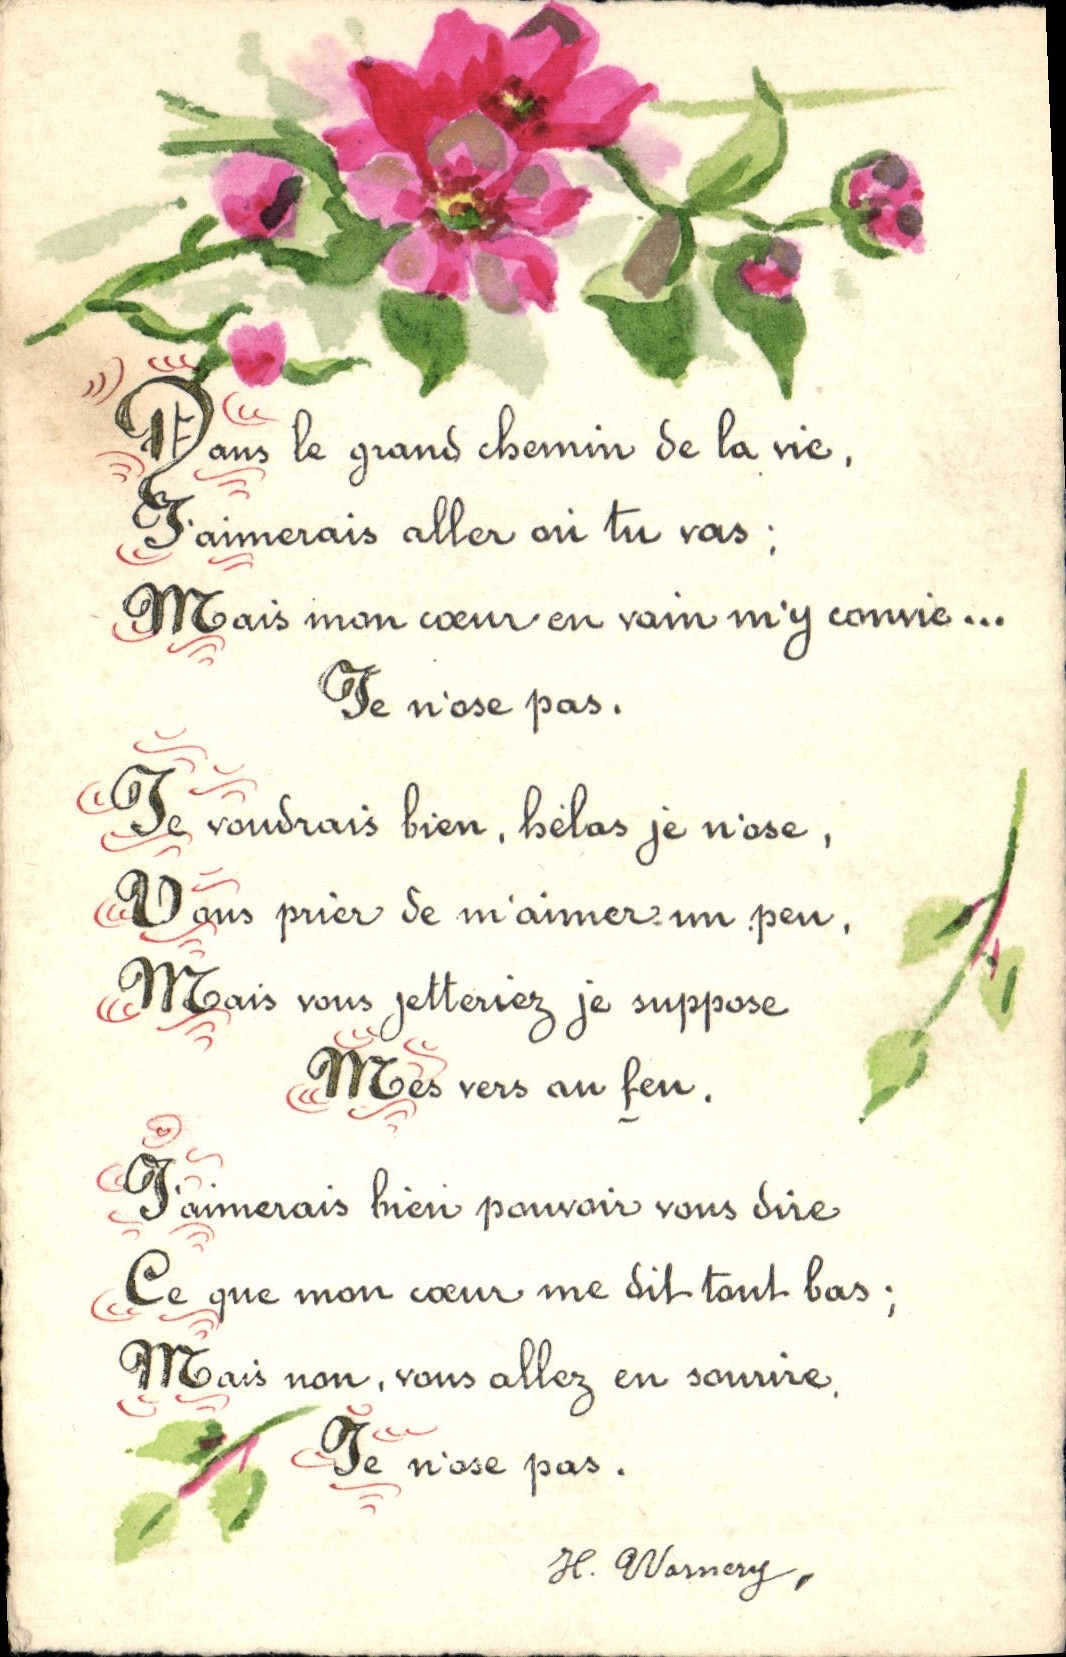 Dans le grand chemin de la vie,
J'aimerais aller où tu vas ;
Mais mon cœur en vain m'y convie...
Je n'ose pas.
Je voudrais bien, hélas je n'ose,
Vous prier de m'aimer un peu,
Mais vous jetteriez je suppose
Mes vers au feu.
J'aimerais bien pouvoir vous dire
Ce que mon cœur me dit tout bas ;
Mais non, vous allez en sourire,
Je n'ose pas.
H. Warnery,